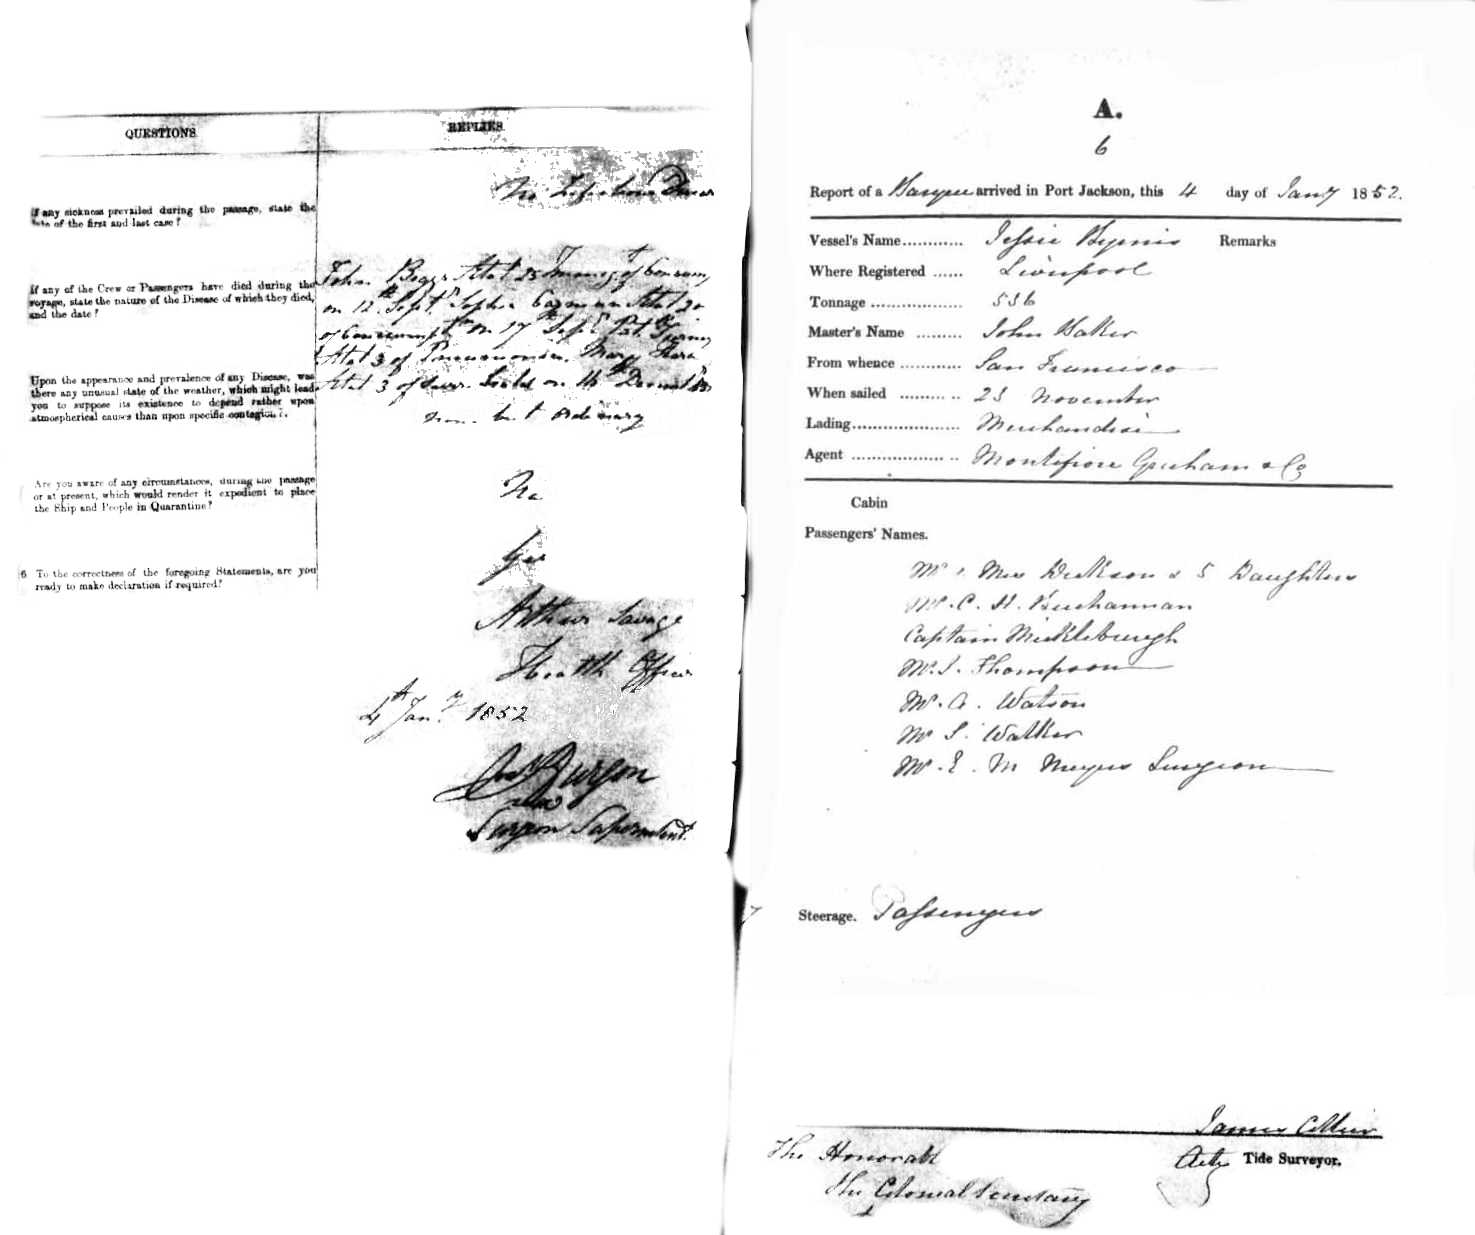 QUESTIONS
REPLIES
If any sickness prevailed during the passage, state the
date of the first and last case?
No
If any of the Crew or Passengers have died during the
voyage, state the nature of the Disease of which they died,
and the date?
John Aetat 25 of
on 12th Sept. Sophia Aetat 20
of on 17th Sept. Pat.
Aetat 3 of Pneumonia. Mary
Aetat 3 of on 16th
Upon the appearance and prevalence of any Disease, was
there any unusual state of the weather, which might lead
you to suppose its existence to depend rather upon
atmospherical causes than upon specific contagion?
None but ordinary
Are you aware of any circumstances, during the passage
or at present, which would render it expedient to place
the Ship and People in Quarantine?
No
6 To the correctness of the foregoing Statements, are you
ready to make declaration if required?
Yes
Arthur Savage
Health Officer
4th Jany 1852
Surgeon Superintendent
A.
6
Report of a Barque arrived in Port Jackson, this 4 day of Jany 1852.
Vessel's Name............ Jessie Byrnes Remarks
Where Registered ...... Liverpool
Tonnage .................. 536
Master's Name ......... John Baker
From whence ............ San Francisco
When sailed ......... .. 23 November
Lading..................... Merchandise
Agent .................. .. Montefiore Graham & Co
Cabin
Passengers' Names.
Mr & Mrs Dickson & 5 Daughters
Mr. C. H. Buchannan
Captain Mickleburgh
Mr. J. Thompson
Mr. A. Watson
Mr S. Walker
Mr. E. M Surgeon
Steerage. Passengers
James Collier
Actg Tide Surveyor.
The Honorable
The Colonial Secretary